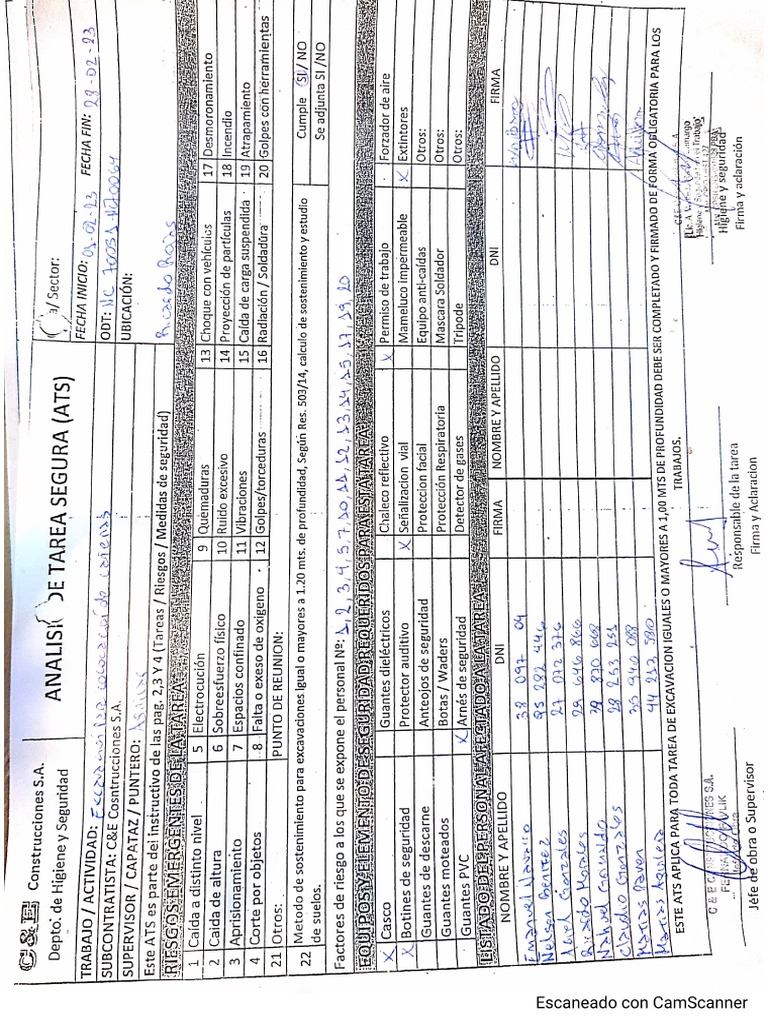 C&E Construcciones S.A.
Depto. de Higiene y Seguridad
ANALISIS DE TAREA SEGURA (ATS)
/ Sector:
TRABAJO / ACTIVIDAD: Excavación colocación de cañerias
FECHA INICIO: 01-02-23 FECHA FIN: 28-02-23
SUBCONTRATISTA: C&E Cosntrucciones S.A.
ODT:
SUPERVISOR / CAPATAZ / PUNTERO:
UBICACIÓN:
Este ATS es parte del instructivo de las pag. 2,3 Y 4 (Tareas / Riesgos / Medidas de seguridad)
Ricardo Rojas
RIESGOS EMERGENTES DE LA TAREA
1 Caida a distinto nivel 5 Electrocución 9 Quemaduras 13 Choque con vehículos 17 Desmoronamiento
2 Caida de altura 6 Sobreesfuerzo físico 10 Ruido excesivo 14 Proyección de partículas 18 Incendio
3 Aprisionamiento 7 Espacios confinado 11 Vibraciones 15 Caida de carga suspendida 19 Atrapamiento
4 Corte por objetos 8 Falta o exeso de oxigeno 12 Golpes/torceduras 16 Radiación / Soldadura 20 Golpes con herramientas
21 Otros: PUNTO DE REUNION:
22 Metodo de sostenimiento para excavaciones Igual o mayores a 1.20 mts. de profundidad, Según Res. 503/14, calculo de sostenimiento y estudio de suelos. Cumple SI / NO
Se adjunta SI / NO
Factores de riesgo a los que se expone el personal Nº: 1, 2, 3, 4, 5, 7, 10, 11, 12, 13, 14, 15, 17, 19, 20
EQUIPOS Y ELEMENTO DE SEGURIDAD REQUERIDOS PARA ESTA TAREA
X Casco Guantes dieléctricos Chaleco reflectivo X Permiso de trabajo Forzador de aire
X Botines de seguridad Protector auditivo X Señalizacion vial Mameluco impermeable X Extintores
Guantes de descarne Anteojos de seguridad Proteccion facial Equipo anti-caídas Otros:
Guantes moteados Botas / Waders Protección Respiratoria Mascara Soldador Otros:
Guantes PVC X Arnés de seguridad Detector de gases Tripode Otros:
LISTADO DEL PERSONAL AFECTADO A LA TAREA
NOMBRE Y APELLIDO DNI FIRMA NOMBRE Y APELLIDO DNI FIRMA
Emanuel 38 097 04
Nelson Benitez 95 282 446
Gonzales 27 072 376
Ricardo Morales 29 646 866
Nahuel 39 870 668
Claudio Gonzales 28 253 251
Matias 35 940 088
Matias Aguilera 44 253 580
ESTE ATS APLICA PARA TODA TAREA DE EXCAVACION IGUALES O MAYORES A 1,00 MTS DE PROFUNDIDAD DEBE SER COMPLETADO Y FIRMADO DE FORMA OBLIGATORIA PARA LOS
TRABAJOS.
C & E CONSTRUCCIONES S.A.
Jéfe de obra o Supervisor
Responsable de la tarea
Firma y Aclaracion
Higiene y seguridad
Firma y aclaración
Escaneado con CamScanner